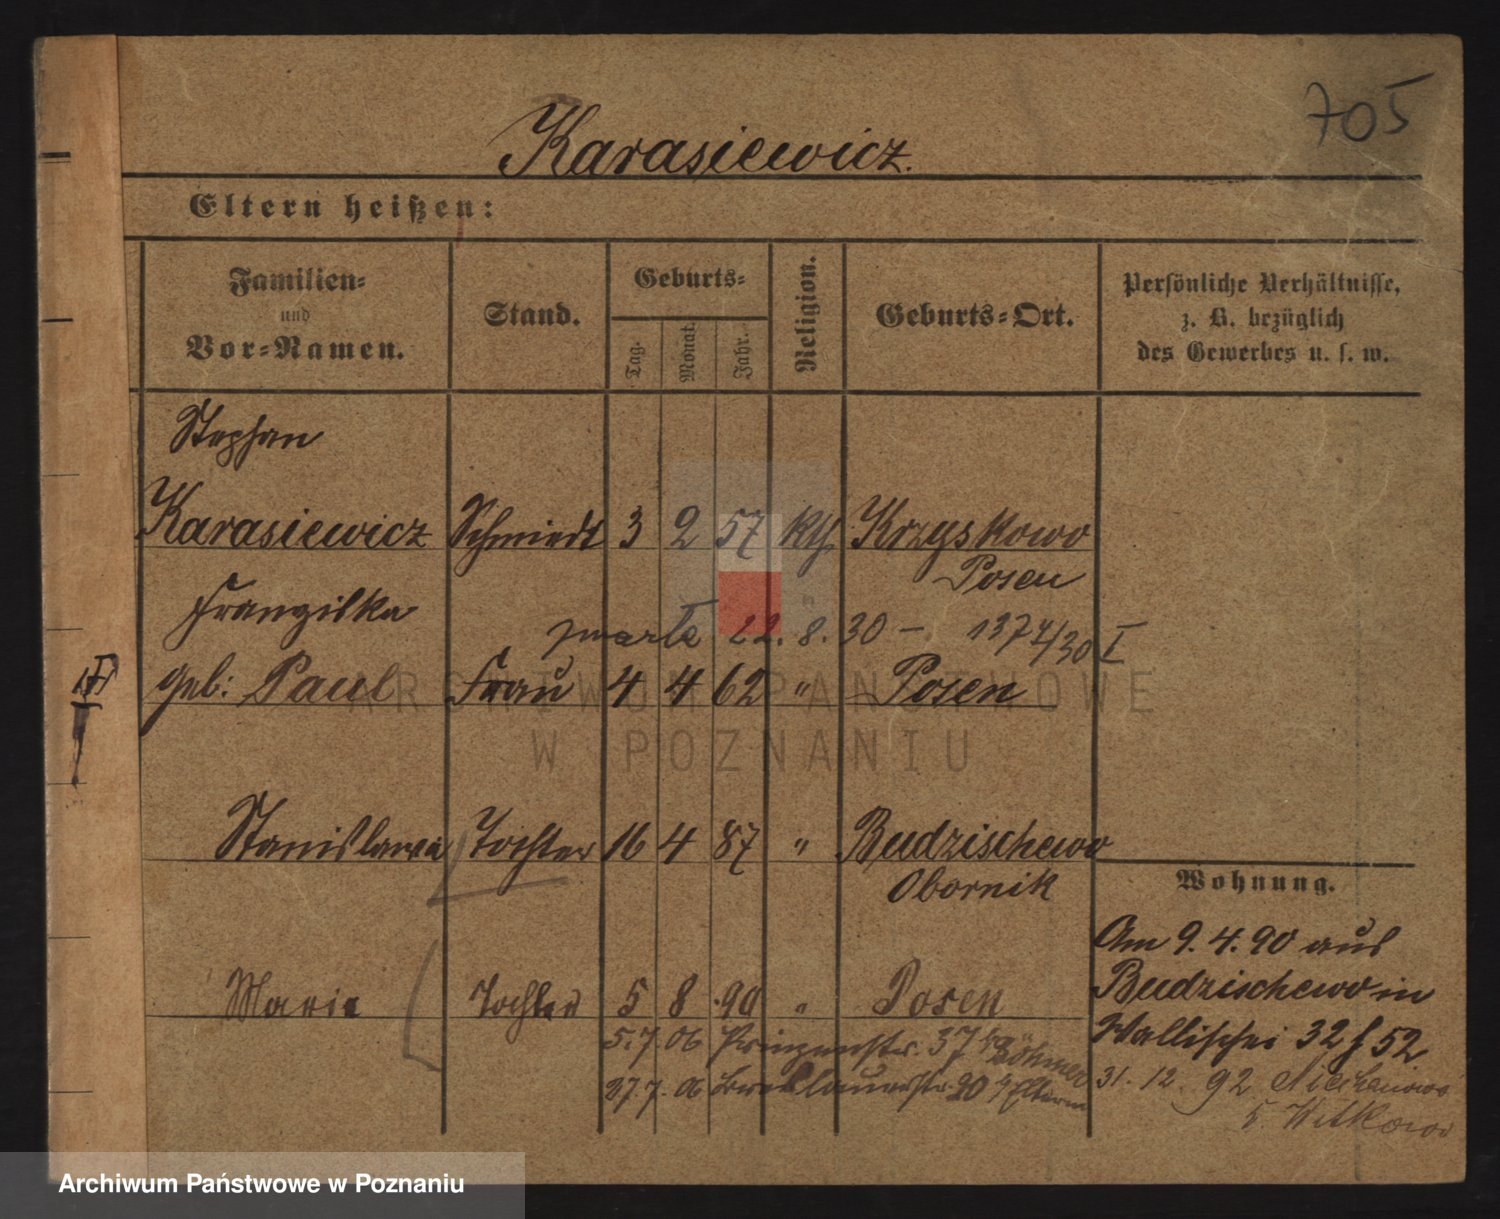 705
Karasiewicz.
Eltern heißen:
Familien- und Vor-Namen.
Stand.
Geburts-
Tag. Monat. Jahr.
Religion.
Geburts-Ort.
Persönliche Verhältnisse,
z. B. bezüglich
des Gewerbes u. s. w.
Stephan
Karasiewicz Schmiedt 3 2 57 kth. Krzyskowo
Posen
Franziska
zmarła 22. 8. 30 – 1374/30 I
geb: Paul Frau 4 4 62 " Posen
Stanislawa Tochter 16 4 87 " Budzischewo
Obornik
Maria Tochter 5 8 90 " Posen
5.7.06 Prinzenstr. 37 Böhmer
27.7.06 Breslauerstr. 20 Eltern
Wohnung.
Am 9.4.90 aus
Budzischewo in
Wallischei 32 f 52
31. 12. 92
Witkowo
ARCHIWUM PAŃSTWOWE
W POZNANIU
Archiwum Państwowe w Poznaniu